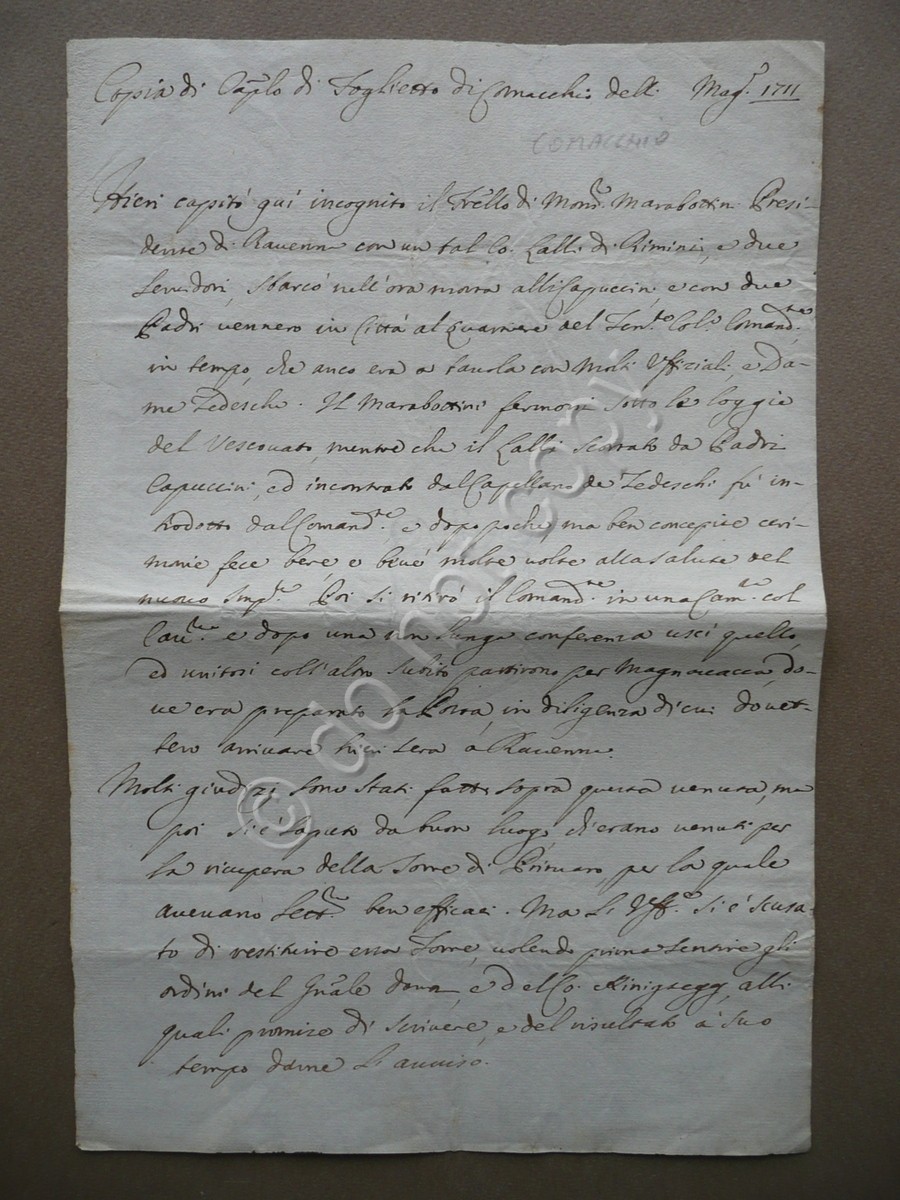 Copia di Cap.lo di Foglietto di Comacchio dell. Mag.o 1711
COMACCHIO
Hieri capitò quì incognito il Frello di Mons.r Marabottini Presi-
dente di Ravenna con un tal Co. Lalli di Rimini, e due
Servidori, sbarcò nell'ora nona alli Capuccini, e con due
Padri vennero in Città al Quartiere del Ten.te Col.o Comand.te
in tempo, che anco era a tavola con molti Uffiziali, e Da-
me Tedesche. Il Marabottini fermossi sotto le loggie
del Vescovato, mentre che il Lalli scortato da Padri
Capuccini, ed incontrato dal Capellano de Tedeschi fù in-
trodotto dal Comand.te e dopo poche ma ben concepite ceri-
monie fece bere e bevè molte volte alla salute del
nuovo Imp.re Poi si ritirò il Comand.te in una Cam.a col
e dopo una non lunga conferenza uscì quello,
ed unitosi coll'altro subito partirono per Magnavacca, do-
ve era preparato la in diligenza di cui dovet-
tero arrivare hieri sera a Ravenna.
Molti giudizi sono stati fatti sopra questa venuta, ma
poi si è saputo da buon luogo, ch'erano venuti per
la ricupera della Torre di Primaro, per la quale
avevano Lett.re ben efficaci. Ma li Uff.li si è scusa-
to di restituire essa Torre, volendo prima sentire gli
ordini del Gnãle e del Co. Kinigsegg, alli
quali promise di scrivere, e del risultato à suo
tempo darne l'avviso.
© do not copy